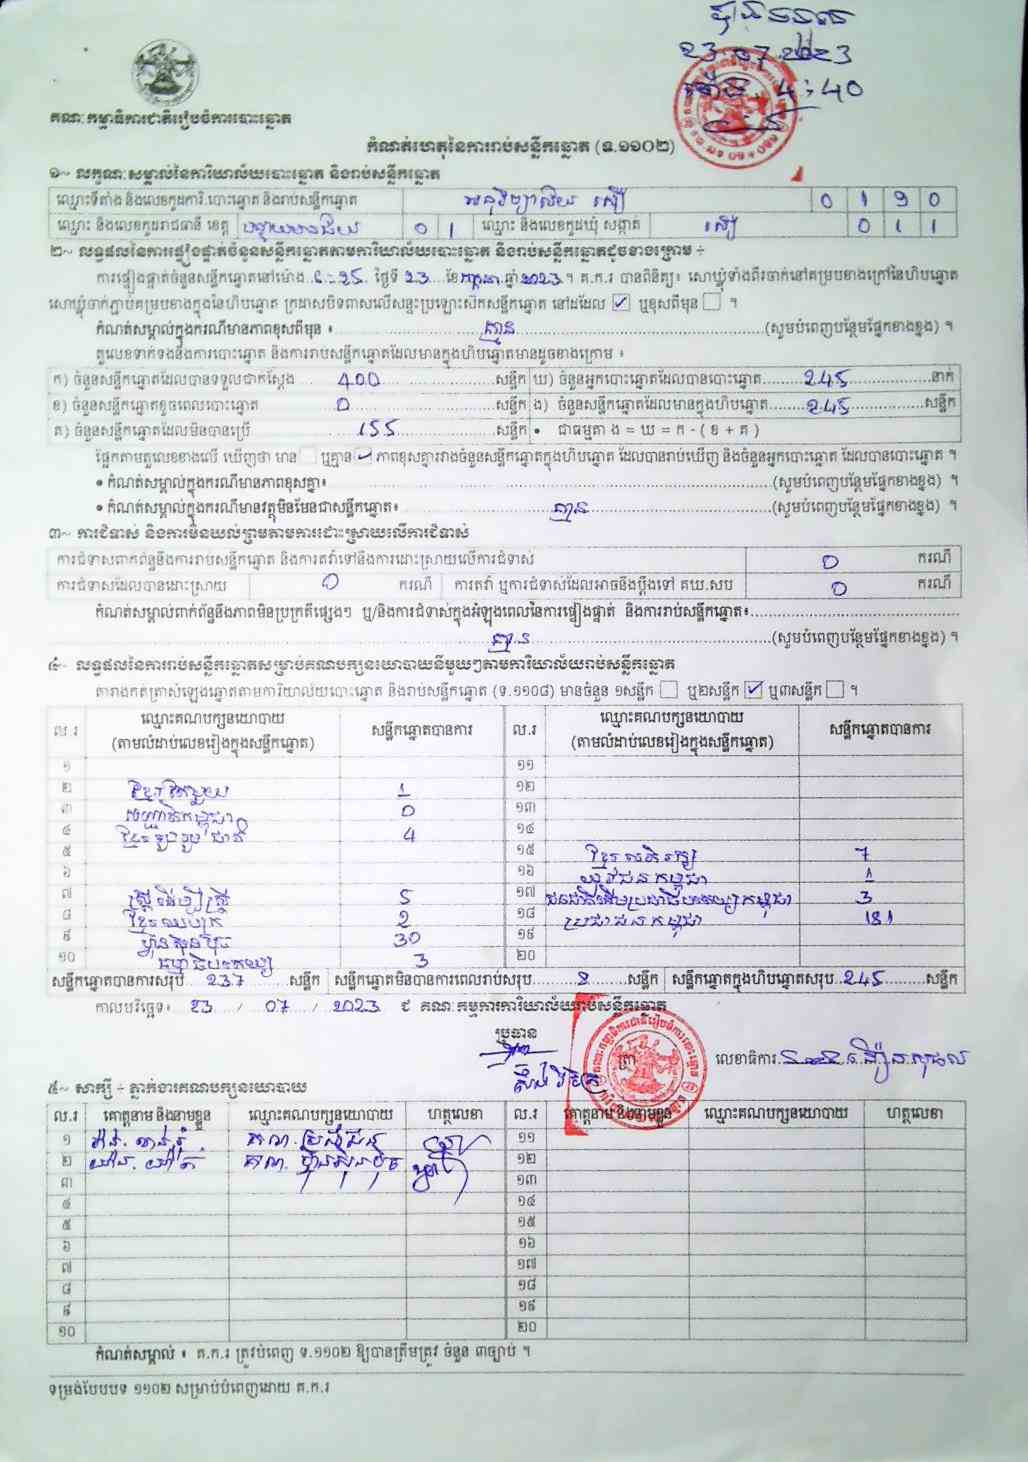 23.07.2023
4:40
គណៈកម្មាធិការជាតិរៀបចំការបោះឆ្នោត
កំណត់ហេតុនៃការរាប់សន្លឹកឆ្នោត (ទ.១១០២)
១~ លក្ខណៈសម្គាល់នៃការិយាល័យបោះឆ្នោត និងរាប់សន្លឹកឆ្នោត
ឈ្មោះទីតាំង និងលេខកូដការិ.បោះឆ្នោត និងរាប់សន្លឹកឆ្នោត អនុវិទ្យាល័យ 0 1 9 0
ឈ្មោះ និងលេខកូដរាជធានី ខេត្ត បន្ទាយមានជ័យ 0 1 ឈ្មោះ និងលេខកូដឃុំ សង្កាត់ 0 1 1
២~ លទ្ធផលនៃការផ្ទៀងផ្ទាត់ចំនួនសន្លឹកឆ្នោតតាមការិយាល័យបោះឆ្នោត និងរាប់សន្លឹកឆ្នោតដូចខាងក្រោម ÷
ការផ្ទៀងផ្ទាត់ចំនួនសន្លឹកឆ្នោតនៅម៉ោង ថ្ងៃទី 23 ខែ កក្កដា ឆ្នាំ 2023 ។ គ.ក.រ បានពិនិត្យ៖ សោឃ្លុំទាំងពីរចាក់នៅគម្របខាងក្រៅនៃហិបឆ្នោត
សោឃ្លុំចាក់ភ្ជាប់គម្របខាងក្នុងនៃហិបឆ្នោត ក្រដាសបិទពាសលើសន្ទះប្រឡោះស៊កសន្លឹកឆ្នោត នៅដដែល ☑ ឬខុសពីមុន ☐ ។
កំណត់សម្គាល់ក្នុងករណីមានភាពខុសពីមុន ៖ គ្មាន (សូមបំពេញបន្ថែមផ្នែកខាងខ្នង) ។
តួលេខទាក់ទងនឹងការបោះឆ្នោត និងការរាប់សន្លឹកឆ្នោតដែលមានក្នុងហិបឆ្នោតមានដូចខាងក្រោម ៖
ក) ចំនួនសន្លឹកឆ្នោតដែលបានទទួលជាក់ស្តែង 400 សន្លឹក ឃ) ចំនួនអ្នកបោះឆ្នោតដែលបានបោះឆ្នោត 245 នាក់
ខ) ចំនួនសន្លឹកឆ្នោតខូចពេលបោះឆ្នោត 0 សន្លឹក ង) ចំនួនសន្លឹកឆ្នោតដែលមានក្នុងហិបឆ្នោត 245 សន្លឹក
គ) ចំនួនសន្លឹកឆ្នោតដែលមិនបានប្រើ 155 សន្លឹក • ជាធម្មតា ង = ឃ = ក - ( ខ + គ )
ផ្អែកតាមតួលេខខាងលើ ឃើញថា មាន ☐ ឬគ្មាន ☑ ភាពខុសគ្នារវាងចំនួនសន្លឹកឆ្នោតក្នុងហិបឆ្នោត ដែលបានរាប់ឃើញ និងចំនួនអ្នកបោះឆ្នោត ដែលបានបោះឆ្នោត ។
• កំណត់សម្គាល់ក្នុងករណីមានភាពខុសគ្នា៖ (សូមបំពេញបន្ថែមផ្នែកខាងខ្នង) ។
• កំណត់សម្គាល់ក្នុងករណីមានវត្ថុមិនមែនជាសន្លឹកឆ្នោត៖ គ្មាន (សូមបំពេញបន្ថែមផ្នែកខាងខ្នង) ។
៣~ ការជំទាស់ និងការមិនយល់ព្រមតាមការដោះស្រាយលើការជំទាស់
ការជំទាស់ពាក់ព័ន្ធនឹងការរាប់សន្លឹកឆ្នោត និងការតវ៉ាទៅនឹងការដោះស្រាយលើការជំទាស់ 0 ករណី
ការជំទាស់ដែលបានដោះស្រាយ 0 ករណី ការតវ៉ា ឬការជំទាស់ដែលអាចនឹងប្តឹងទៅ គឃ.សប 0 ករណី
កំណត់សម្គាល់ពាក់ព័ន្ធនឹងភាពមិនប្រក្រតីផ្សេងៗ ឬ/និងការជំទាស់ក្នុងអំឡុងពេលនៃការផ្ទៀងផ្ទាត់ និងការរាប់សន្លឹកឆ្នោត៖
គ្មាន (សូមបំពេញបន្ថែមផ្នែកខាងខ្នង) ។
៤~ លទ្ធផលនៃការរាប់សន្លឹកឆ្នោតសម្រាប់គណបក្សនយោបាយនីមួយៗតាមការិយាល័យរាប់សន្លឹកឆ្នោត
តារាងកត់ត្រាសំឡេងឆ្នោតតាមការិយាល័យបោះឆ្នោត និងរាប់សន្លឹកឆ្នោត (ទ.១១០៨) មានចំនួន ១សន្លឹក ☐ ឬ២សន្លឹក ☑ ឬ៣សន្លឹក ☐ ។
ល.រ ឈ្មោះគណបក្សនយោបាយ (តាមលំដាប់លេខរៀងក្នុងសន្លឹកឆ្នោត) សន្លឹកឆ្នោតបានការ ល.រ ឈ្មោះគណបក្សនយោបាយ (តាមលំដាប់លេខរៀងក្នុងសន្លឹកឆ្នោត) សន្លឹកឆ្នោតបានការ
១ ១១
២ ខ្មែរតែមួយ 1 ១២
៣ សញ្ជាតិកម្ពុជា 0 ១៣
៤ ខ្មែររួបរួមជាតិ 4 ១៤
៥ ១៥ ខ្មែរ 7
៦ ១៦ យុវជនកម្ពុជា 1
៧ ស្ត្រីដើម្បីស្ត្រី 5 ១៧ ជនជាតិដើមប្រជាធិបតេយ្យកម្ពុជា 3
៨ ខ្មែរឈប់ក្រ 2 ១៨ ប្រជាជនកម្ពុជា 181
៩ ហ៊្វុនស៊ិនប៉ិច 30 ១៩
១០ ធម្មាធិបតេយ្យ 3 ២០
សន្លឹកឆ្នោតបានការសរុប 237 សន្លឹក សន្លឹកឆ្នោតមិនបានការពេលរាប់សរុប 8 សន្លឹក សន្លឹកឆ្នោតក្នុងហិបឆ្នោតសរុប 245 សន្លឹក
កាលបរិច្ឆេទ៖ 23 / 07 / 2023 ៩ គណៈកម្មការការិយាល័យរាប់សន្លឹកឆ្នោត
ប្រធាន
ត្រា លេខាធិការ
៥~ សាក្សី ÷ ភ្នាក់ងារគណបក្សនយោបាយ
ល.រ គោត្តនាម និងនាមខ្លួន ឈ្មោះគណបក្សនយោបាយ ហត្ថលេខា ល.រ គោត្តនាម និងនាមខ្លួន ឈ្មោះគណបក្សនយោបាយ ហត្ថលេខា
១ ១១
២ គណ. ហ៊្វុនស៊ិនប៉ិច ១២
៣ ១៣
៤ ១៤
៥ ១៥
៦ ១៦
៧ ១៧
៨ ១៨
៩ ១៩
១០ ២០
កំណត់សម្គាល់ ៖ គ.ក.រ ត្រូវបំពេញ ទ.១១០២ ឱ្យបានត្រឹមត្រូវ ចំនួន ៣ច្បាប់ ។
ទម្រង់បែបបទ ១១០២ សម្រាប់បំពេញដោយ គ.ក.រ